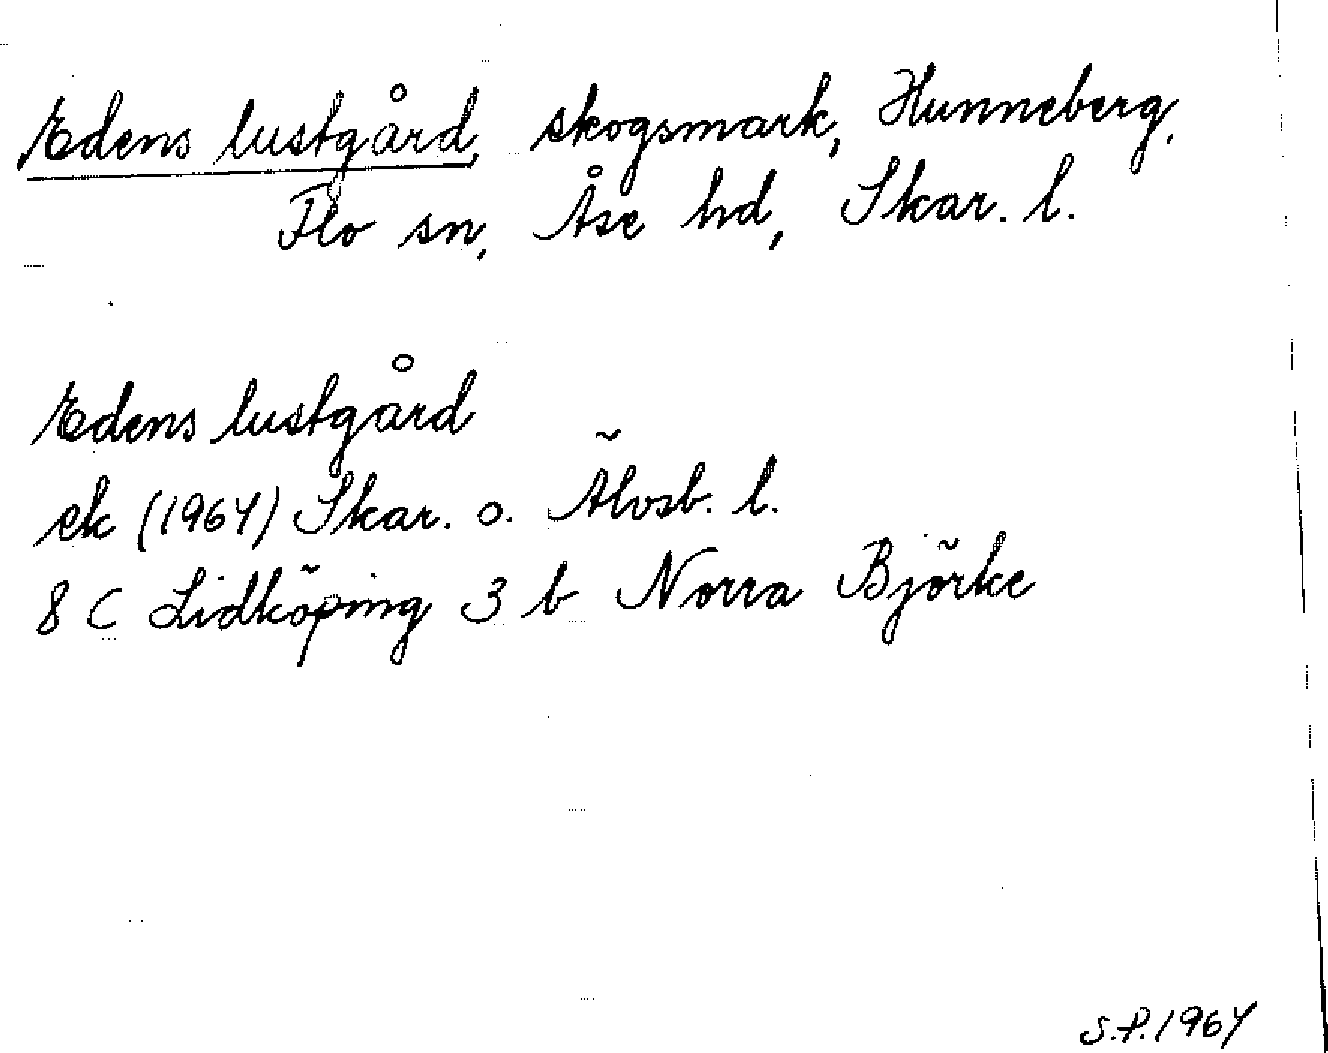 Edens lustgård, skogsmark, Hunneberg,
Flo sn, Åse hd, Skar. l.
Edens lustgård
ek (1964) Skar. o. Älvsb. l.
8 C Lidköping 3 b Norra Björke
S.P. 1964